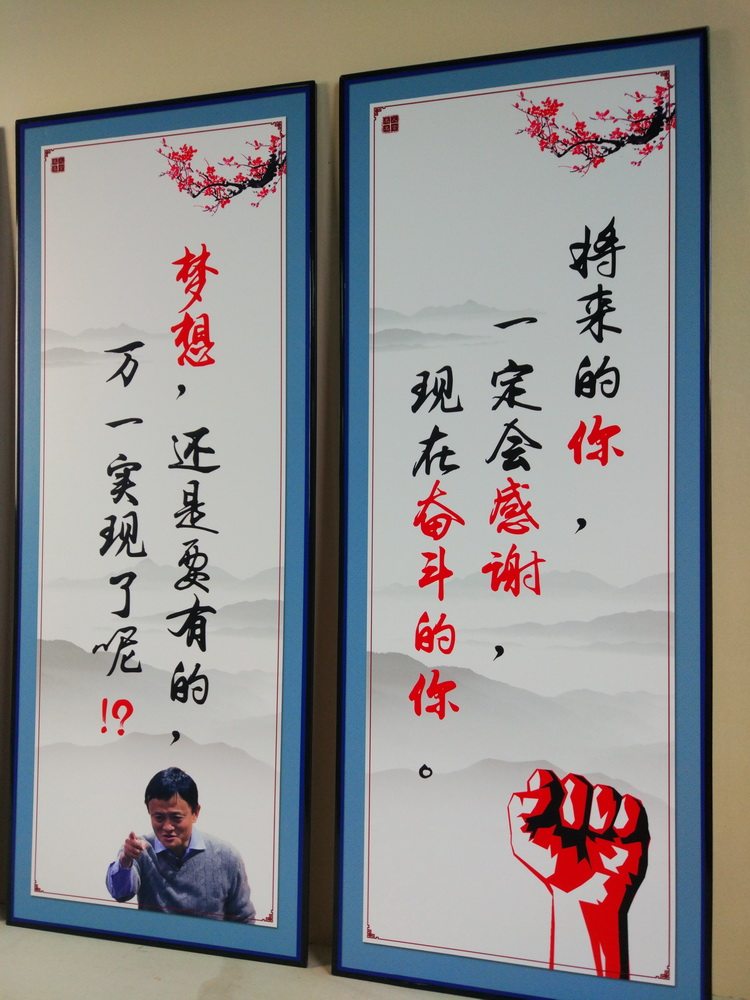 将来的你，
一定会感谢，
现在奋斗的你。
梦想，还是要有的，
万一实现了呢!?